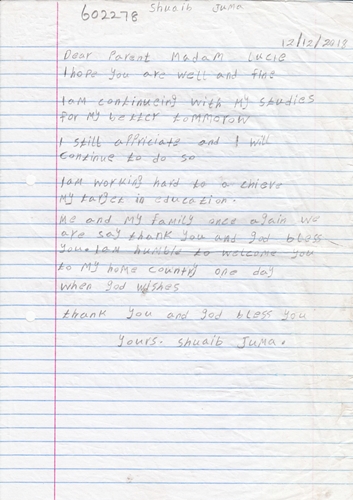 602278 Shuaib Juma
12/12/2018
Dear Parent Madam Lucie
I hope you are well and fine
I am continueing with my studies
for my better tommorow
I still affriciate and I will
continue to do so
I am working hard to a chieve
my target in education.
me and my family once again we
are say thank you and god bless
you. I am humble to welcome you
to my home country one day
when god wishes
thank you and god bless you
yours. shuaib Juma.